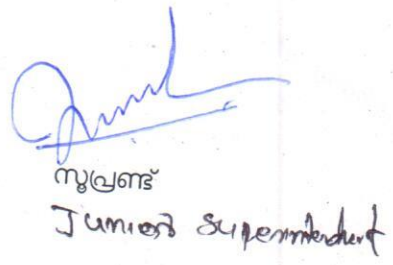 സൂപ്രണ്ട്
Junior Superintendent